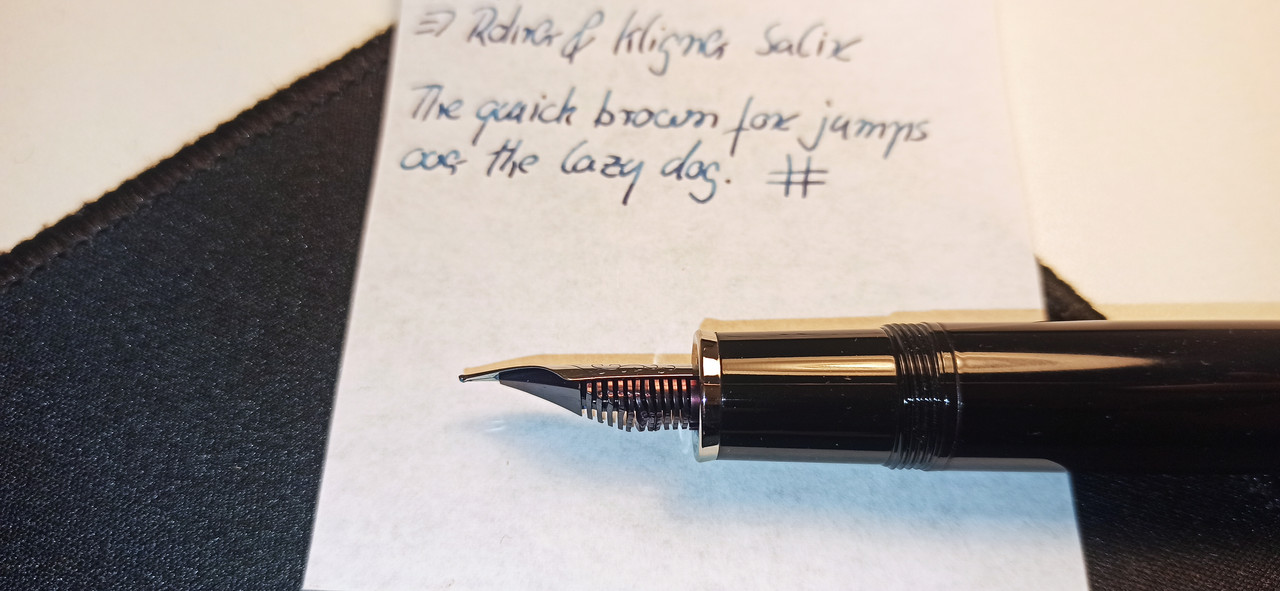 ⇒ Rohrer & Klingner Salix
The quick brown fox jumps
over the lazy dog. #